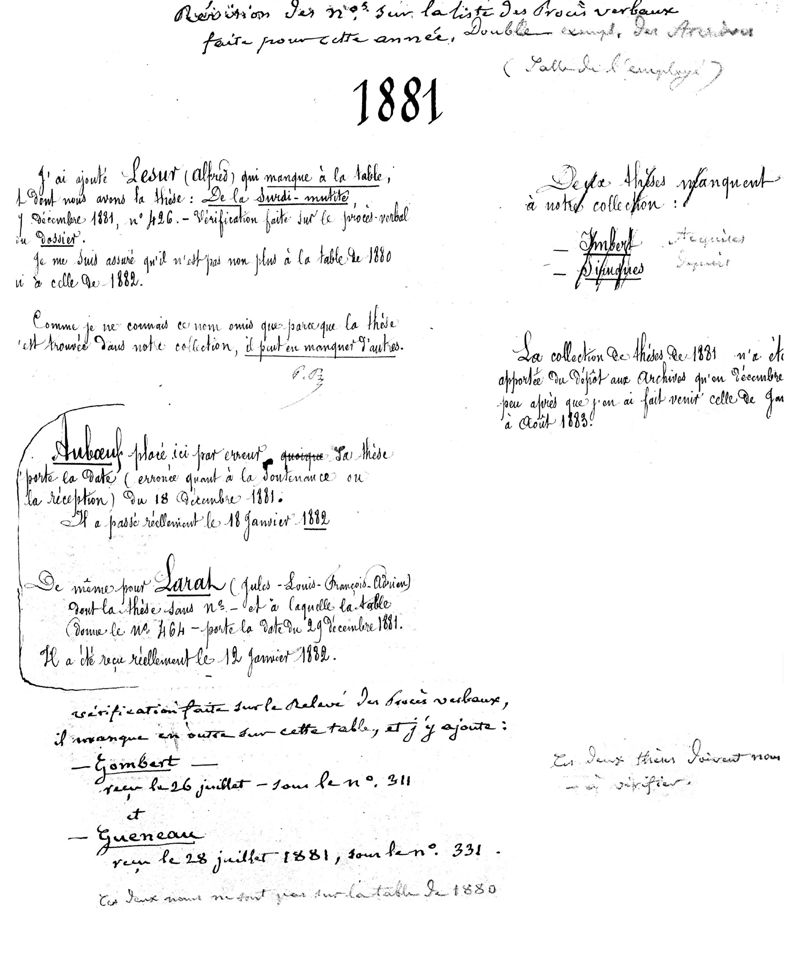 Révision des nos sur la liste des Procès verbaux
faite pour cette année. Double exempl. des Archives
(Salle de l'employé)
1881
J'ai ajouté Lesur (Alfred) qui manque à la table,
dont nous avons la thèse : De la Surdi-mutité,
7 décembre 1881, n° 426. - Vérification faite sur le procès-verbal
au dossier.
Je me suis assuré qu'il n'est pas non plus à la table de 1880
ni à celle de 1882.
Comme je ne connais ce nom omis que parce que la thèse
s'est trouvée dans notre collection, il peut en manquer d'autres.
P. B
Aubœuf placé ici par erreur quoique Sa thèse
porte la date (erronée quant à la Soutenance ou
la réception) du 18 décembre 1881.
Il a passé réellement le 18 Janvier 1882
De même pour Larat (Jules-Louis-François-Adrien)
dont la thèse sans n° - et à laquelle la table
donne le n° 464 - porte la date du 29 décembre 1881.
Il a été reçu réellement le 12 Janvier 1882.
vérification faite sur le Relevé des Procès verbaux,
il manque en outre sur cette table, et j'y ajoute :
- Gombert -
reçu le 26 juillet - sous le n°. 311
et
- Gueneau
reçu le 28 juillet 1881, sous le n°. 331.
Ces deux noms ne sont pas sur la table de 1880
Deux thèses manquent
à notre collection :
- Imbert Acquises
- depuis
La collection de thèses de 1881 n'a été
apportée du dépôt aux Archives qu'en Décembre
peu après que j'en ai fait venir celle de Jan
à Août 1883.
Ces deux thèses doivent nous
- à vérifier.